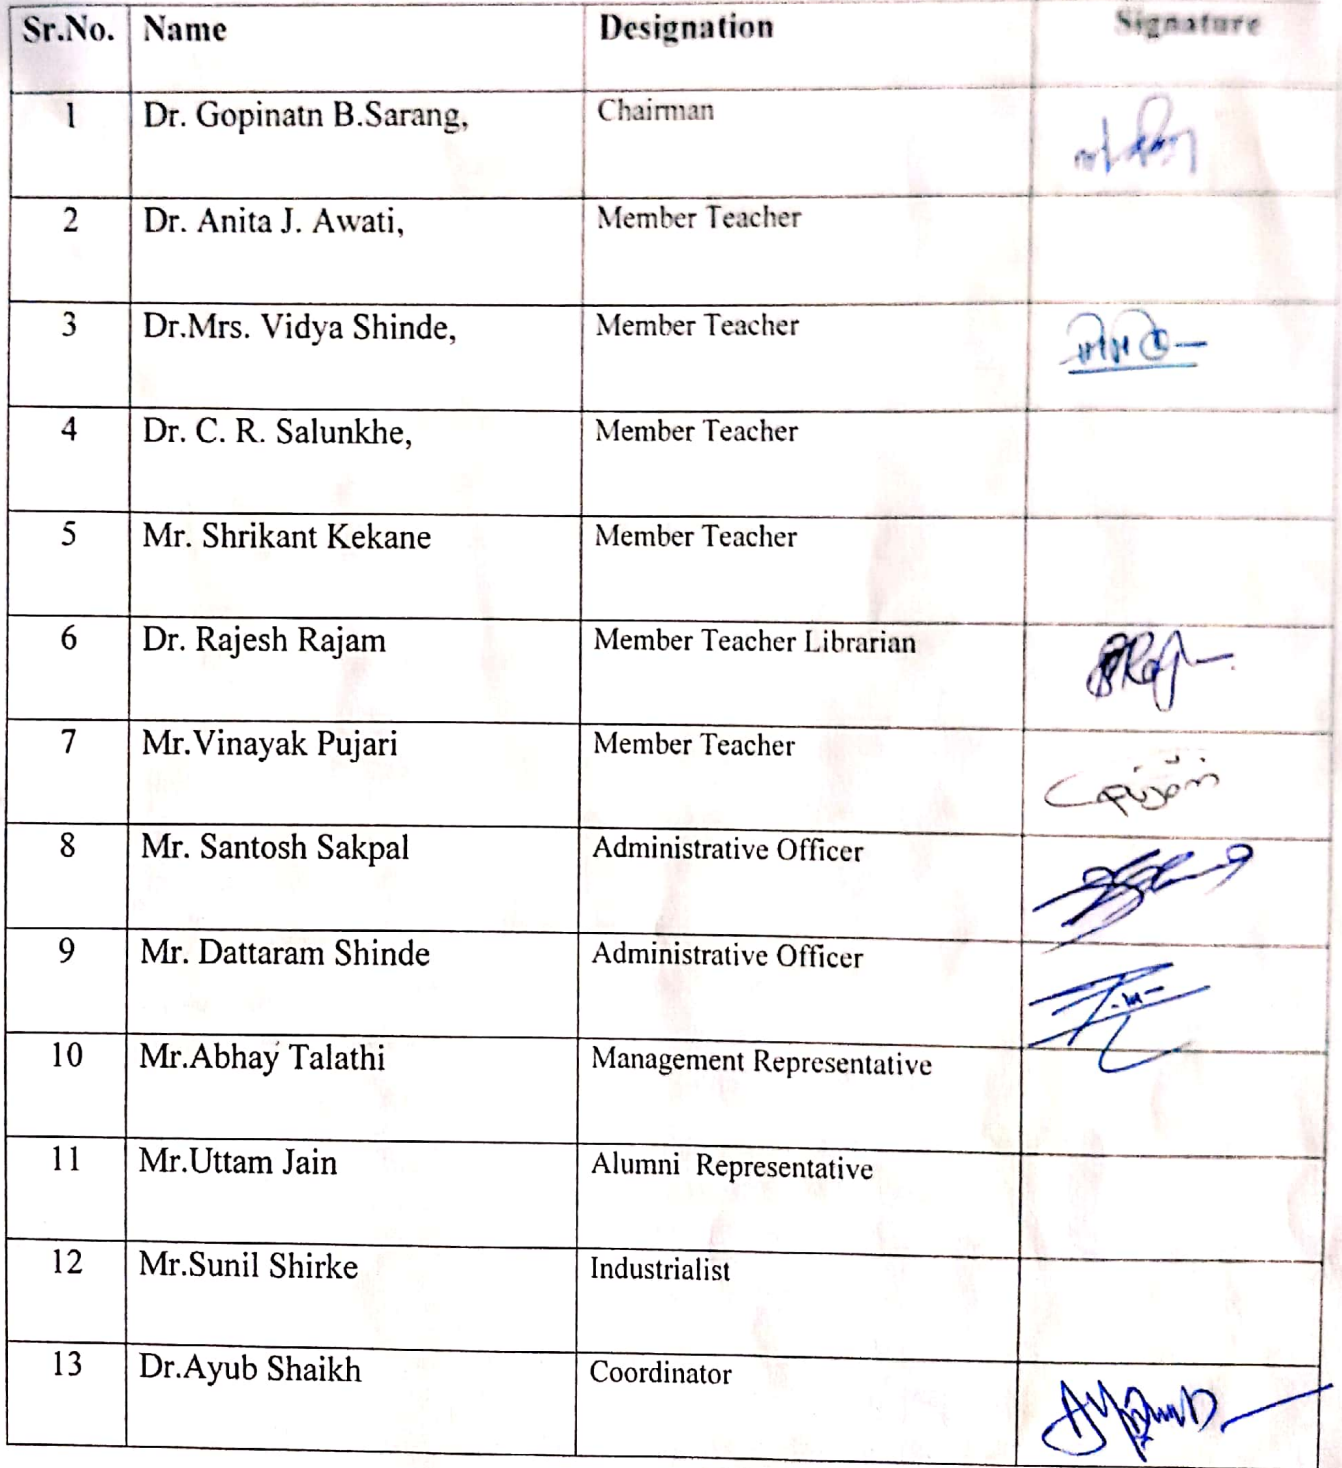 Sr.No. Name Designation Signature
1 Dr. Gopinatn B.Sarang, Chairman
2 Dr. Anita J. Awati, Member Teacher
3 Dr.Mrs. Vidya Shinde, Member Teacher
4 Dr. C. R. Salunkhe, Member Teacher
5 Mr. Shrikant Kekane Member Teacher
6 Dr. Rajesh Rajam Member Teacher Librarian
7 Mr.Vinayak Pujari Member Teacher
8 Mr. Santosh Sakpal Administrative Officer
9 Mr. Dattaram Shinde Administrative Officer
10 Mr.Abhay Talathi Management Representative
11 Mr.Uttam Jain Alumni Representative
12 Mr.Sunil Shirke Industrialist
13 Dr.Ayub Shaikh Coordinator